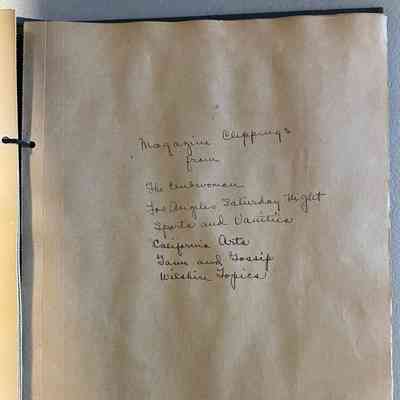 Magazine Clippings
from
The Clubwoman
Los Angeles Saturday Night
Sports and Vanities
California Arts
and Gossip
Wilshire Topics